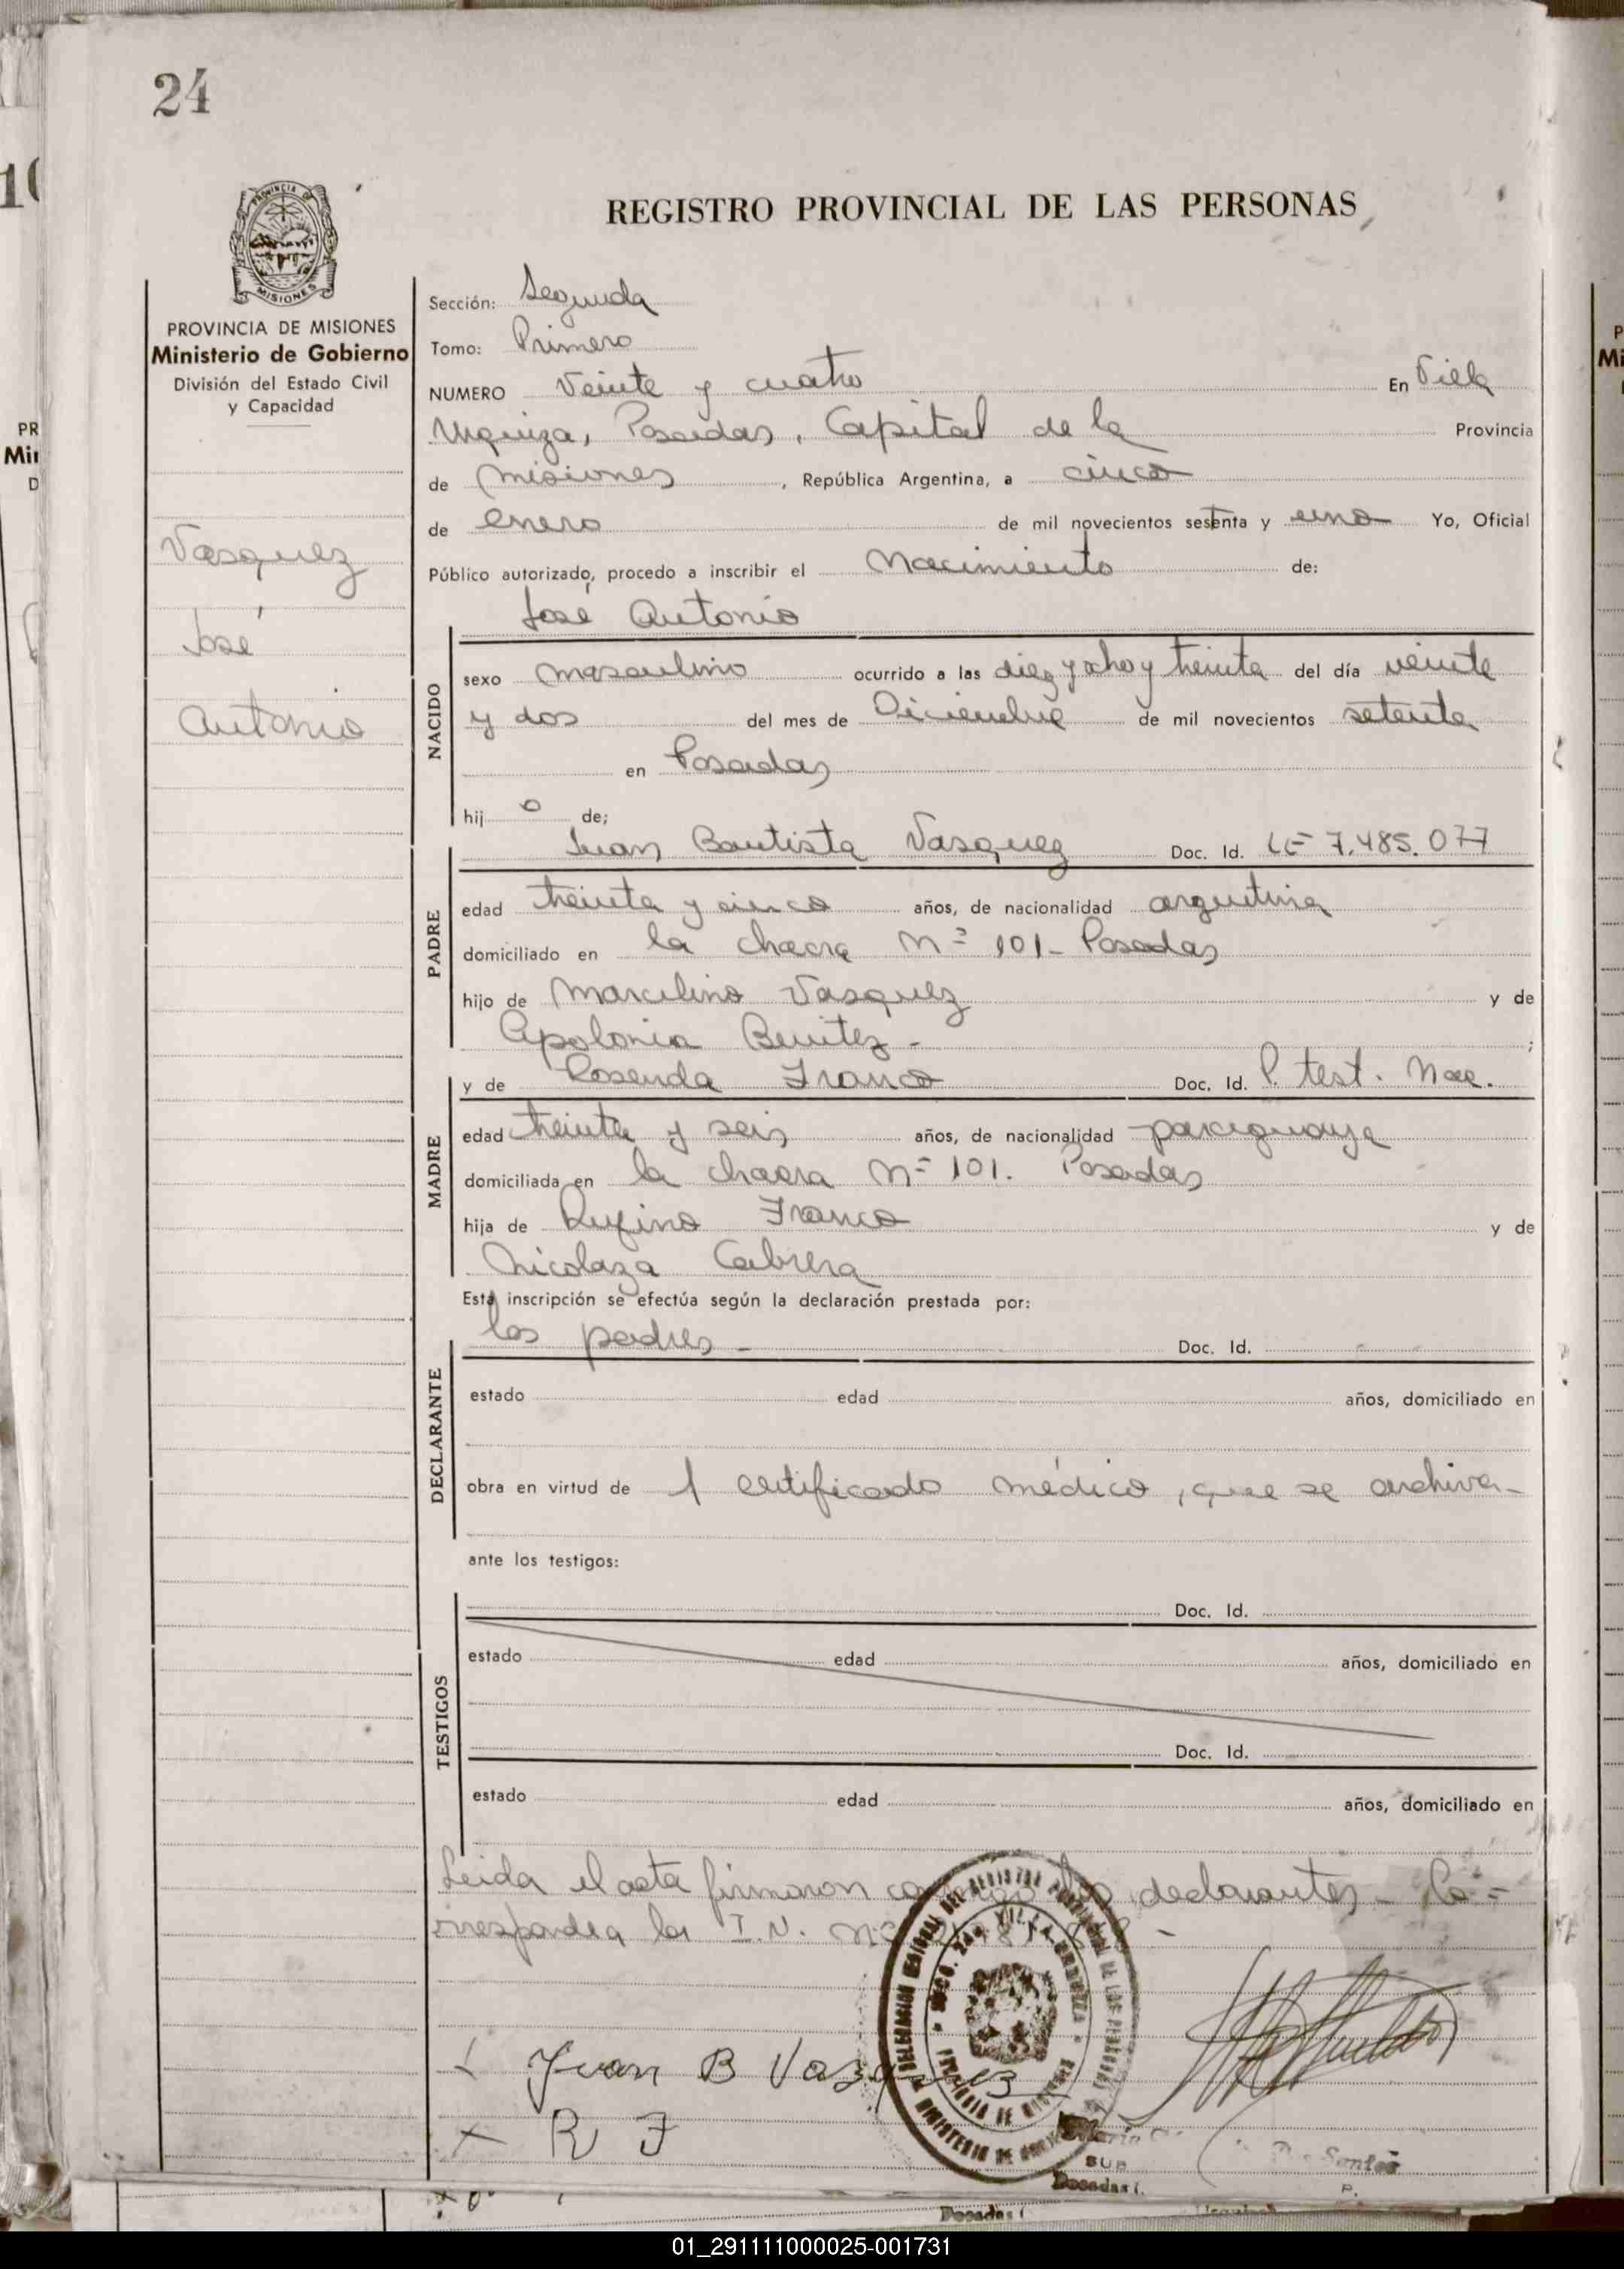 24
PROVINCIA DE MISIONES
Ministerio de Gobierno
División del Estado Civil
y Capacidad
Vasquez
José
Antonio
REGISTRO PROVINCIAL DE LAS PERSONAS
Sección: Segunda
Tomo: Primero
NUMERO Veinte y cuatro En Villa
Urquiza, Posadas, Capital de la Provincia
de Misiones, República Argentina, a cinco
de enero de mil novecientos sesenta y uno Yo, Oficial
Público autorizado, procedo a inscribir el Nacimiento de:
José Antonio
NACIDO
sexo masculino ocurrido a las diez y ocho y treinta del día veinte
y dos del mes de Diciembre de mil novecientos setenta
en Posadas
hij o de;
Juan Bautista Vasquez Doc. Id. LE 7.485.077
PADRE
edad treinta y cinco años, de nacionalidad argentina
domiciliado en la chacra Nº 101- Posadas
hijo de Marcelino Vasquez y de
Apolonia Benitez - ;
y de Rosenda Franco Doc. Id. P. test. Nac.
MADRE
edad treinta y seis años, de nacionalidad paraguaya
domiciliada en la chacra Nº 101. Posadas
hija de Rufino Franco y de
Nicolaza Cabrera
Esta inscripción se efectúa según la declaración prestada por:
los padres - Doc. Id.
DECLARANTE
estado edad años, domiciliado en
obra en virtud de 1 certificado médico, que se archiva-
ante los testigos:
Doc. Id.
TESTIGOS
estado edad años, domiciliado en
Doc. Id.
estado edad años, domiciliado en
Leida el acta firmaron conmigo los declarantes - Co=
rresponde a la I.N. Nº
Juan B Vazquez
R F
SUB
Posadas
Santos
01_291111000025-001731